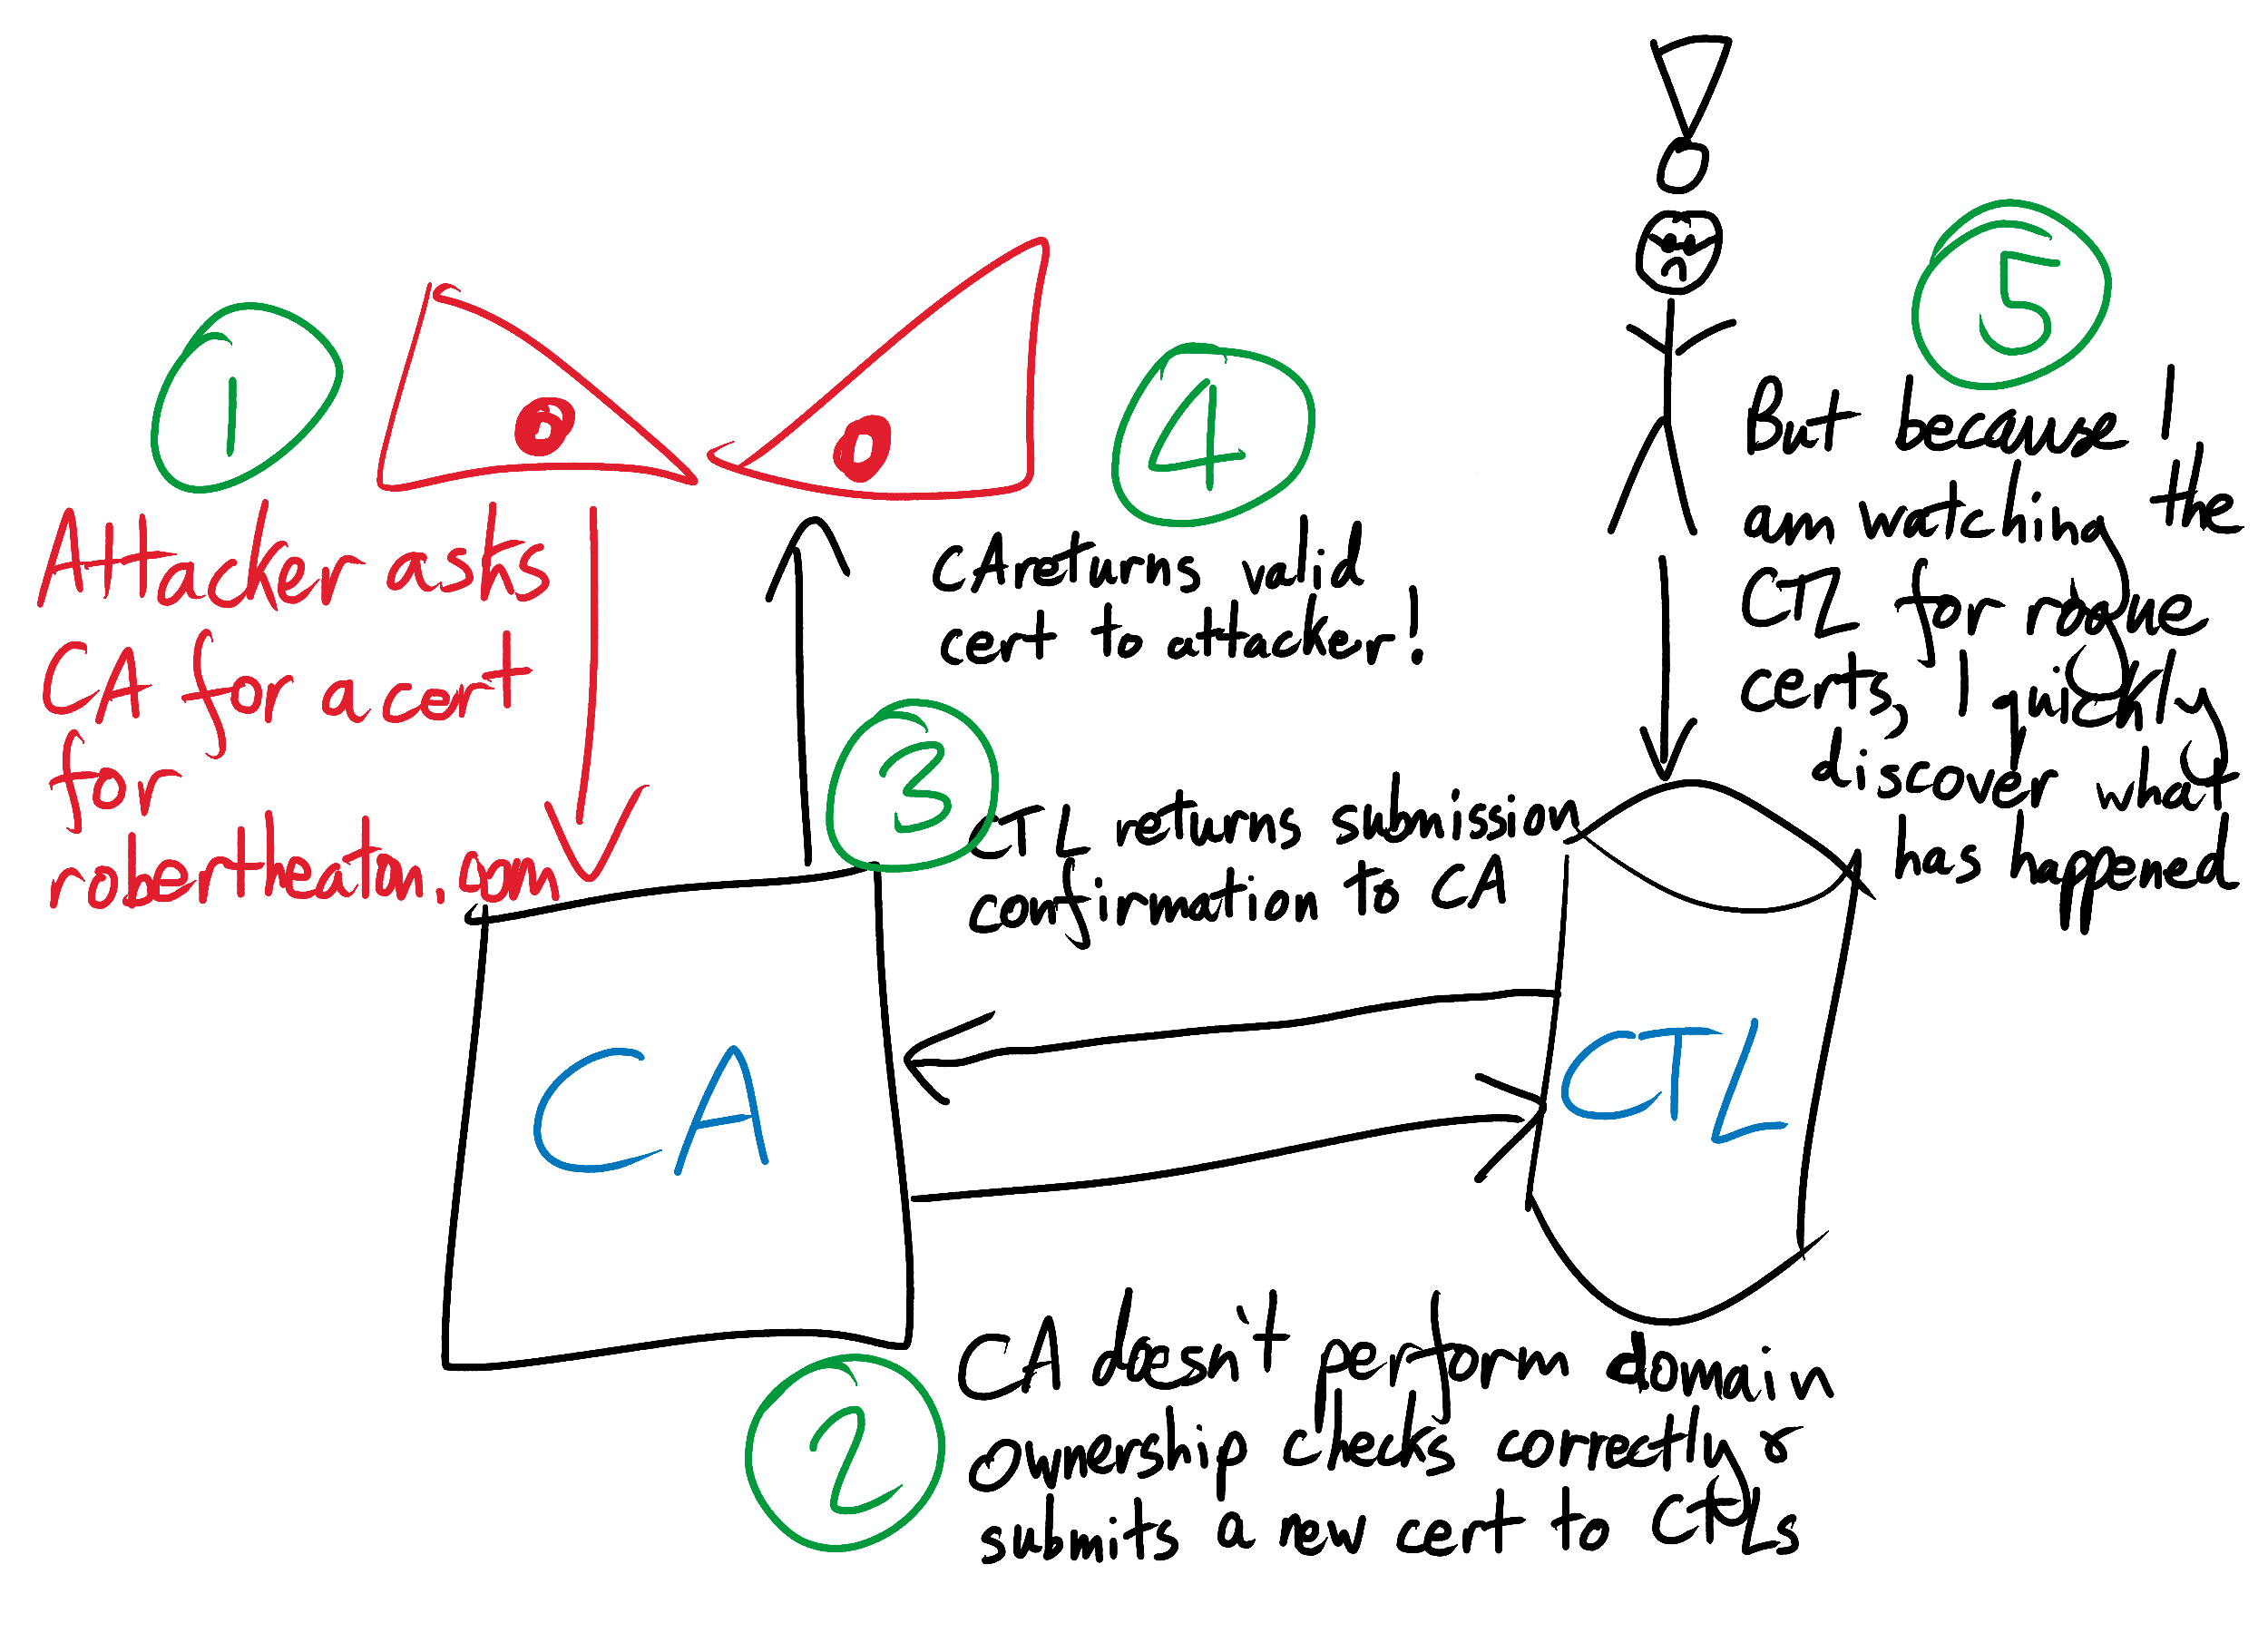 1
Attacker asks
CA for a cert
for
robertheaton.com
CA
2
CA doesn't perform domain
ownership checks correctly &
submits a new cert to CTLs
3
CTL returns submission
confirmation to CA
CTL
4
CA returns valid
cert to attacker!
5
But because I
am watching the
CTL for rogue
certs, I quickly
discover what
has happened